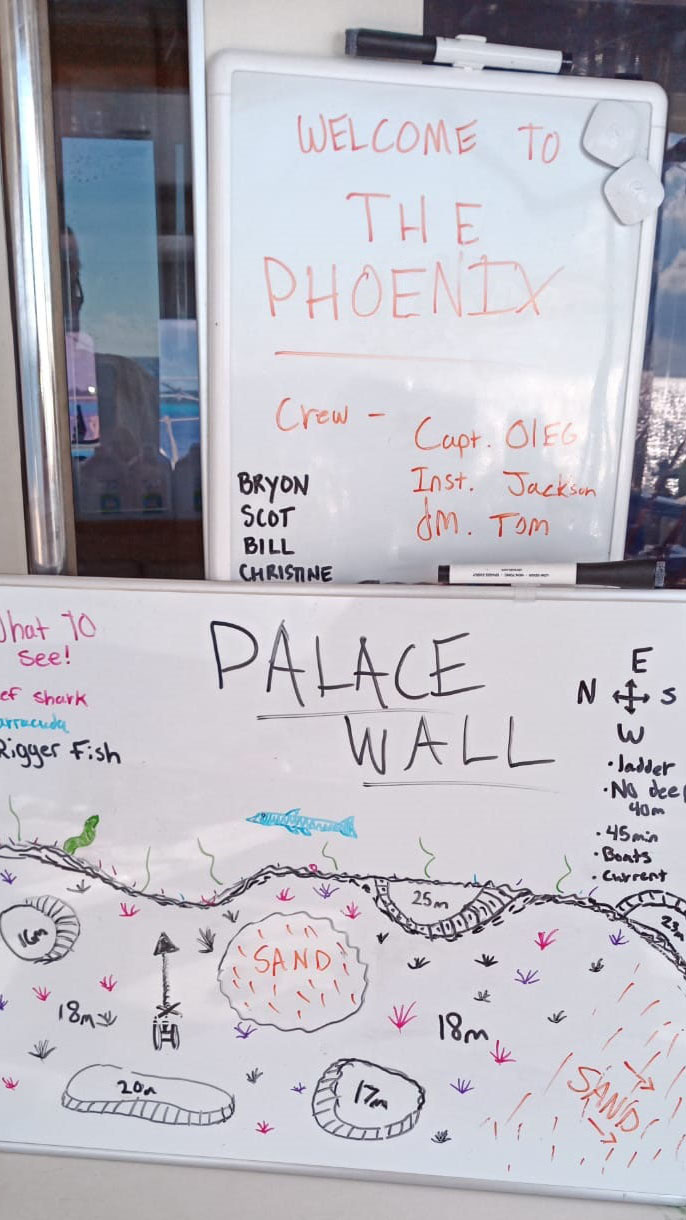 WELCOME TO
THE
PHOENIX
Crew - Capt. OlEG
Inst. Jackson
DM. Tom
BRYON
SCOT
BILL
CHRISTINE
hat TO
see!
ef shark
arracuda
Rigger Fish
PALACE
WALL
E
N S
W
• ladder
• No deep
40m
• 45min
• Boats
• Current
16m
25m
23m
SAND
18m
18m
20m
17m
SAND